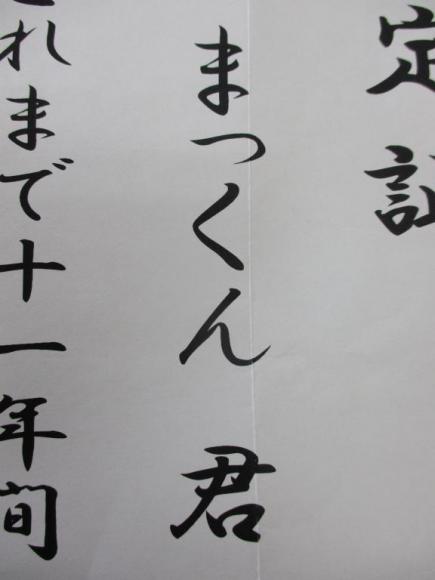 定証
まっくん 君
これまで十一年間